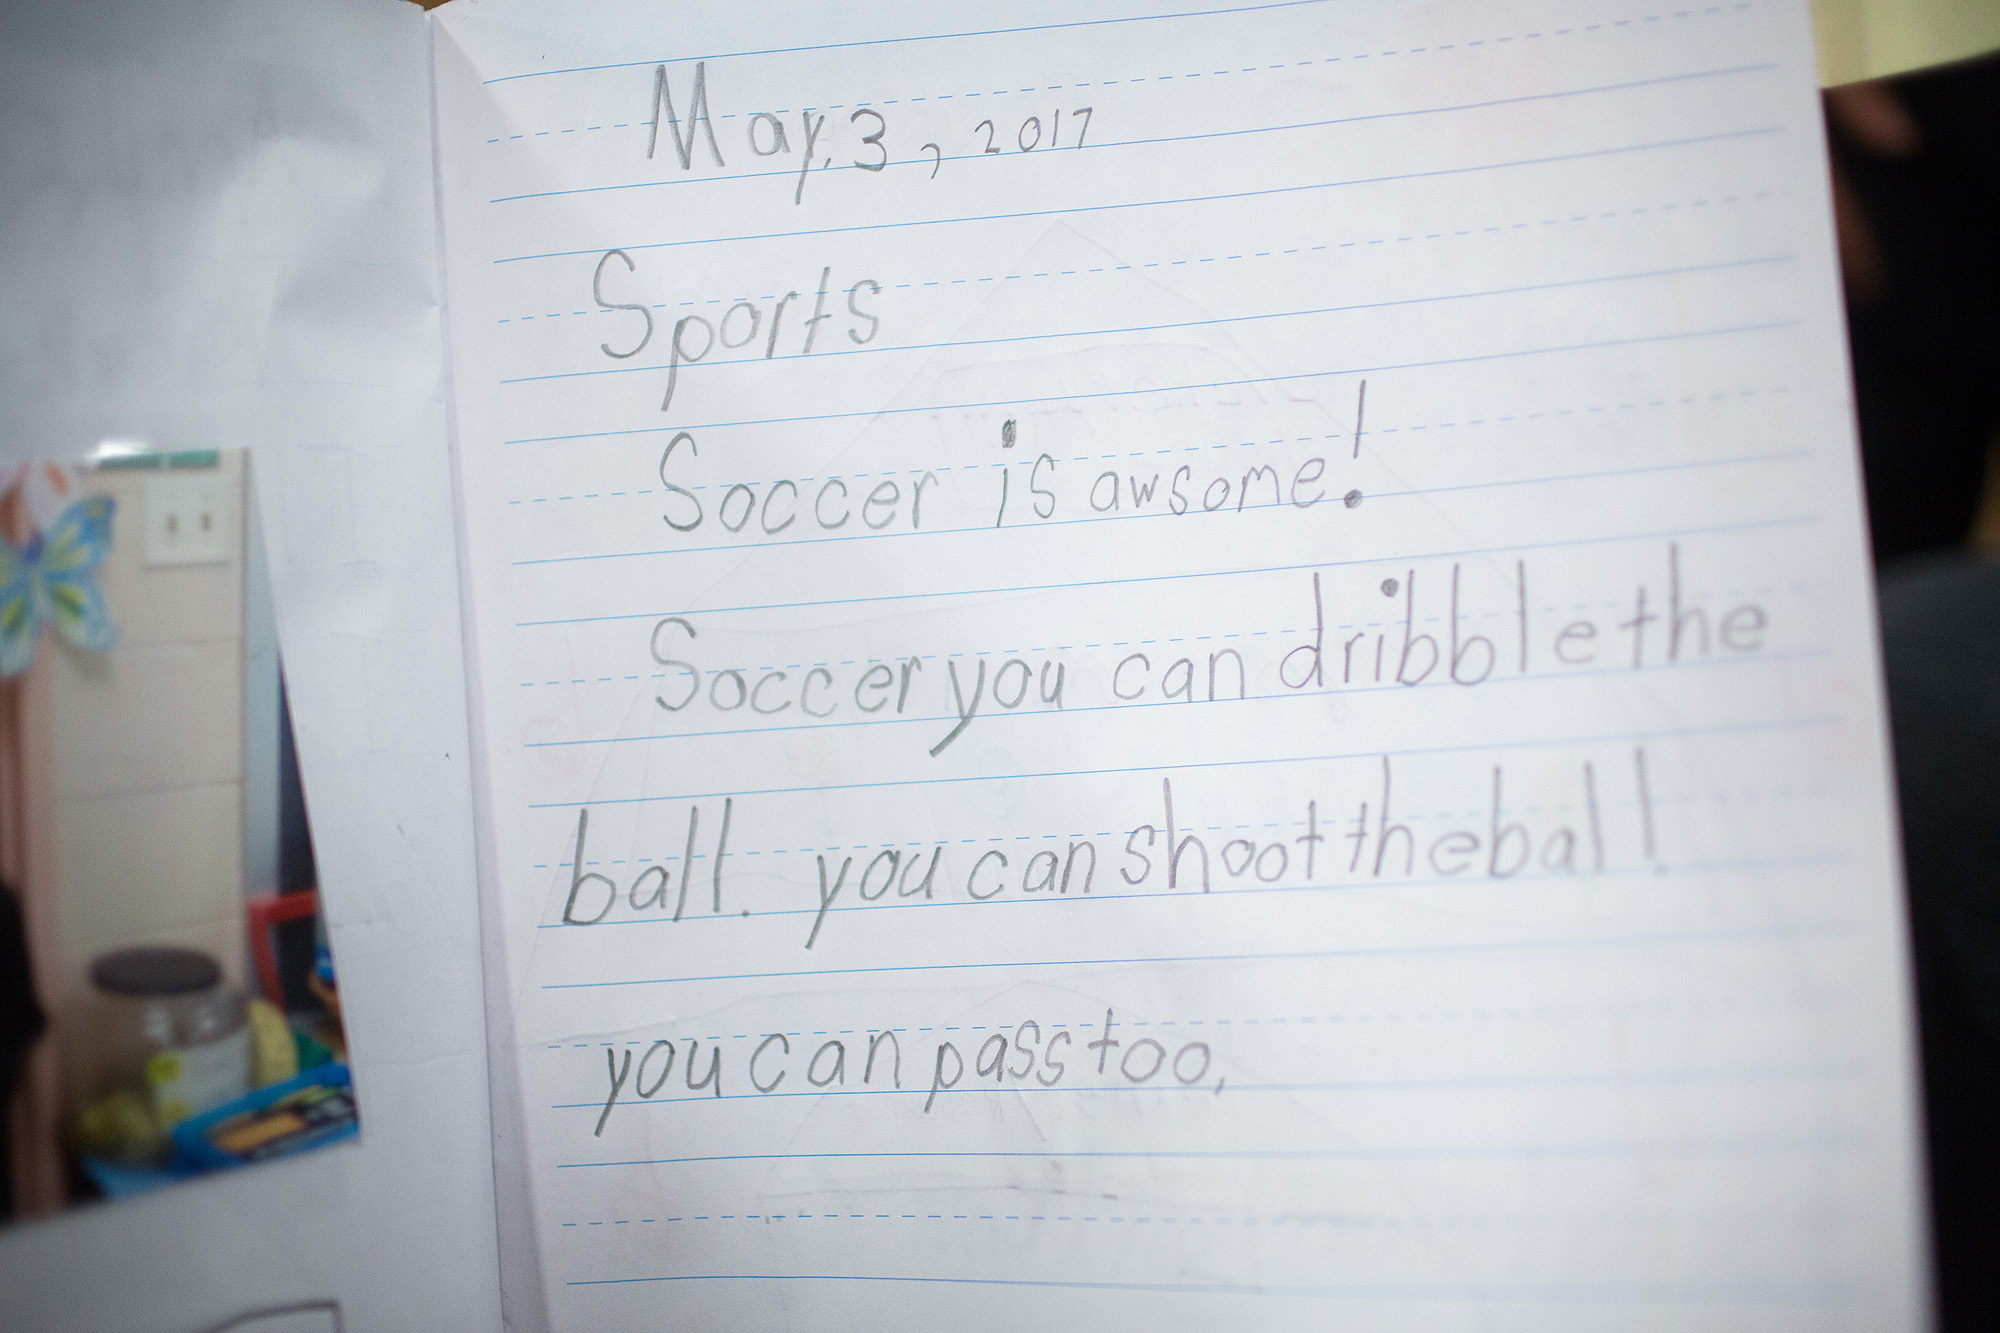 May, 3, 2017
Sports
Soccer is awsome!
Soccer you can dribble the
ball. you can shoot the ball.
you can pass too,